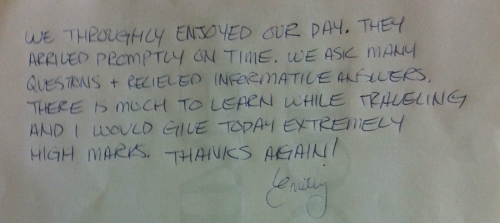 WE THROUGHLY ENJOYED OUR DAY. THEY
ARRIVED PROMPTLY ON TIME. WE ASK MANY
QUESTIONS + RECIEVED INFORMATIVE ANSWERS.
THERE IS MUCH TO LEARN WHILE TRAVELING
AND I WOULD GIVE TODAY EXTREMELY
HIGH MARKS. THANKS AGAIN!
Emily